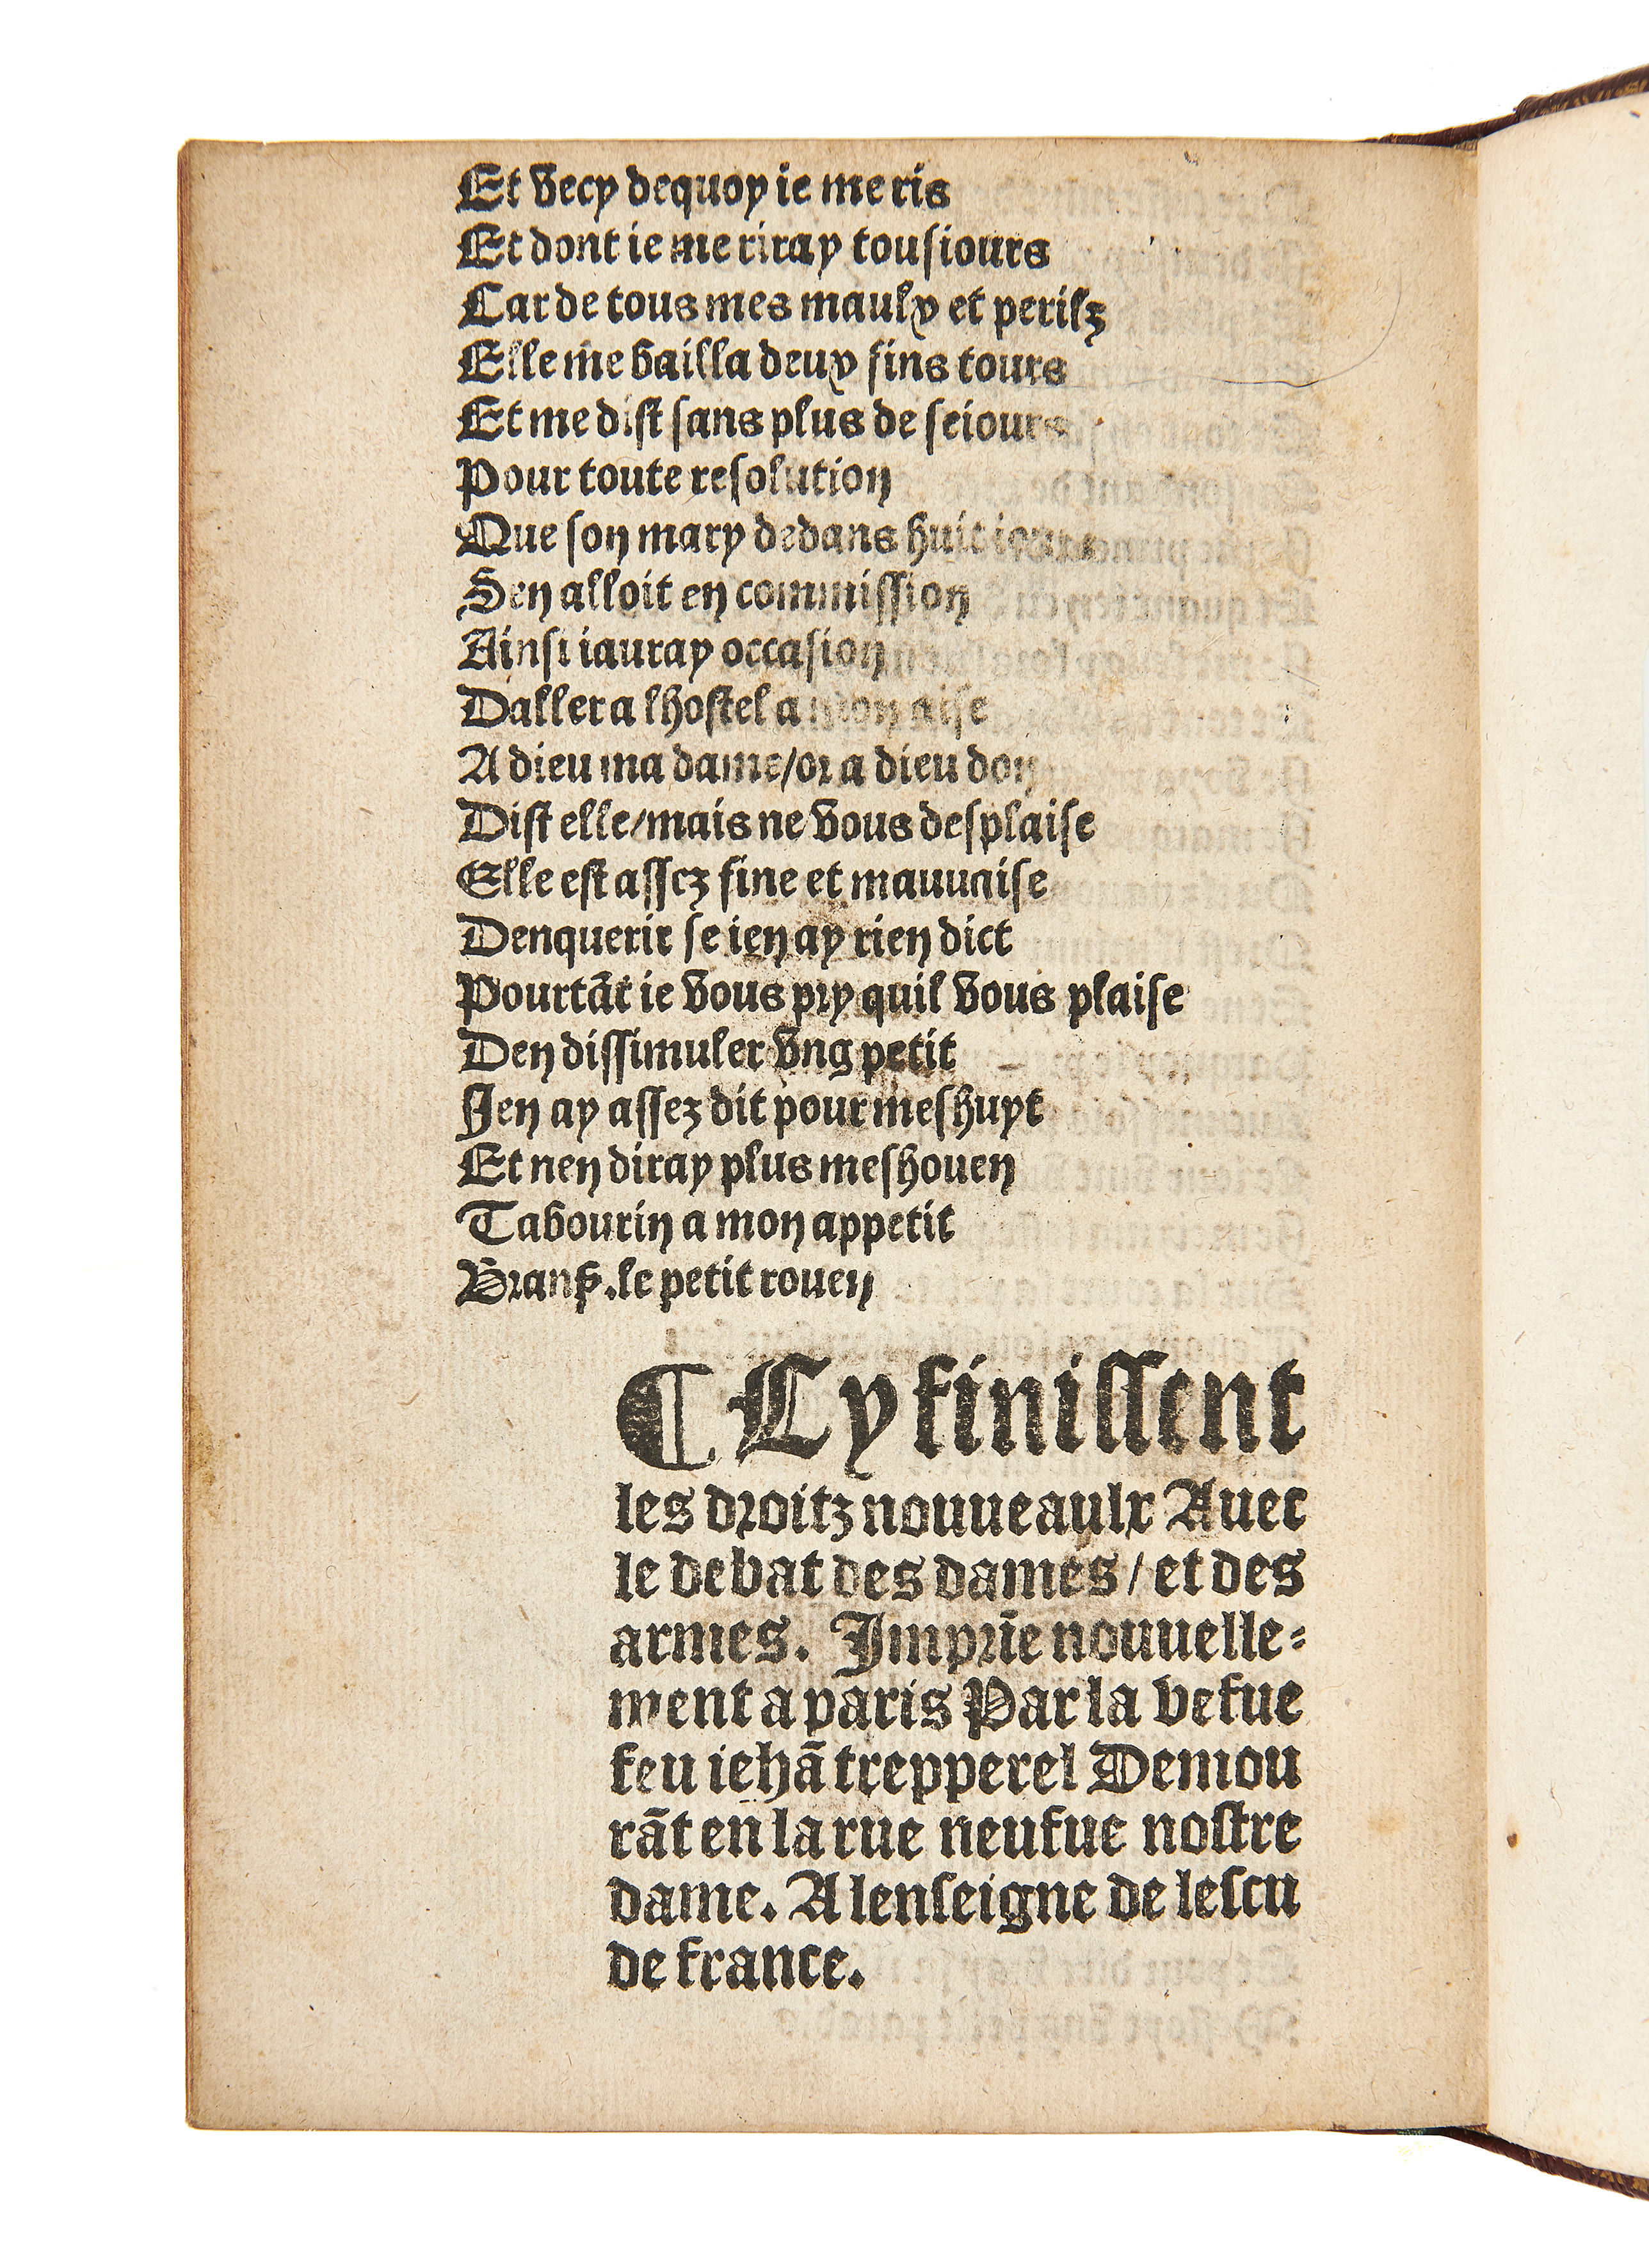 Et vecy dequoy ie me ris
Et dont ie me riray tousiours
Car de tous mes maulx et perilz
Elle me bailla deux fins tours
Et me dist sans plus de seiours
Pour toute resolution
Que son mary dedans huit iours
Sen alloit en commission
Ainsi iauray occasion
Daller a lhostel a mon aise
A dieu ma dame/or a dieu don
Dist elle/mais ne vous desplaise
Elle est assez fine et mauuaise
Denquerir se ien ay rien dict
Pourtãt ie vous pry quil vous plaise
Den dissimuler vng petit
Jen ay assez dit pour meshuyt
Et nen diray plus meshouen
Tabourin a mon appetit
le petit rouen
¶ Cy finissent
les droitz nouueaulx Auec
le debat des dames/et des
armes. Imprĩe nouuelle-
ment a paris Par la vefue
feu iehã trepperel Demou
rãt en la rue neufue nostre
dame. A lenseigne de lescu
de france.